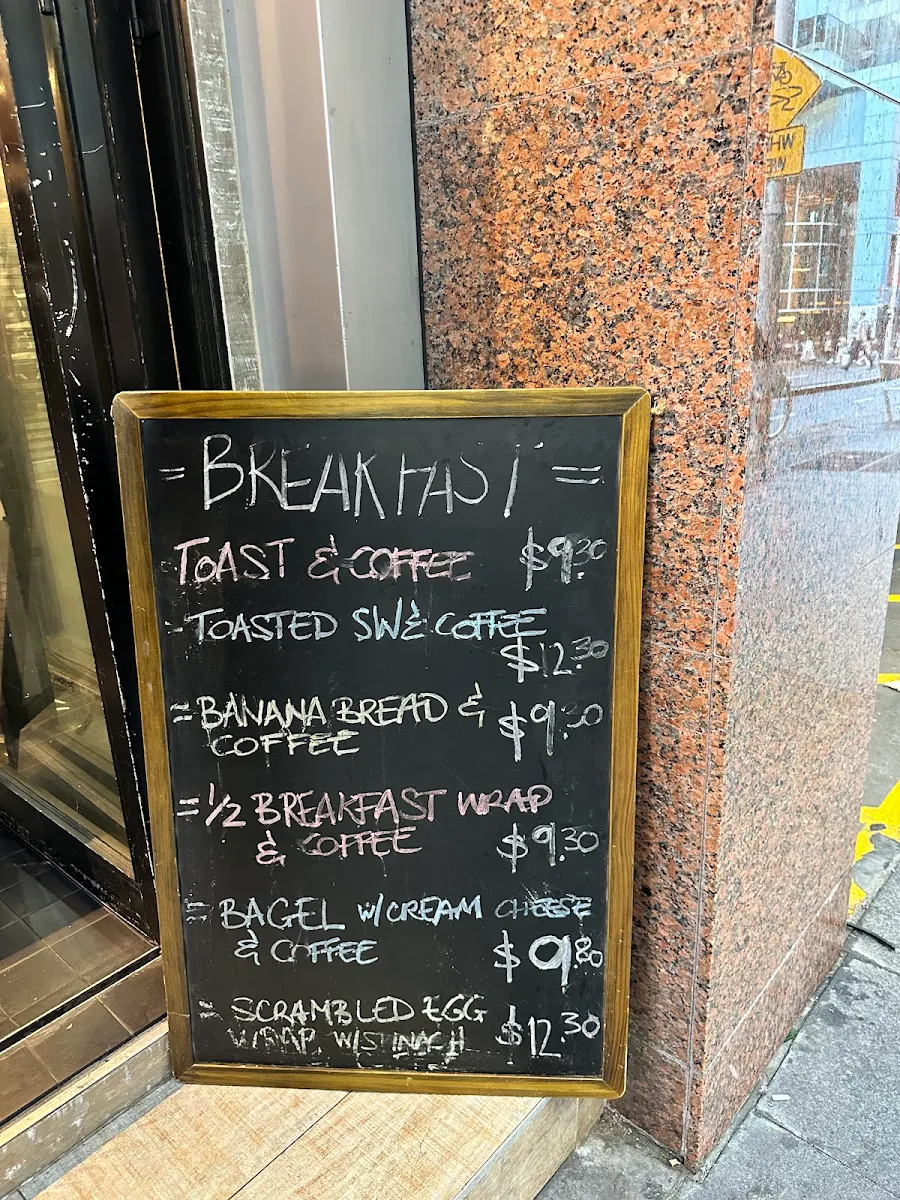 = BREAKFAST =
TOAST & COFFEE $9.30
- TOASTED SW & COFFEE
$12.30
= BANANA BREAD & $9.30
COFFEE
= 1/2 BREAKFAST WRAP
& COFFEE $9.30
= BAGEL W/CREAM CHEESE
& COFFEE $9.80
= SCRAMBLED EGG
WRAP W/SPINACH $12.30
HW